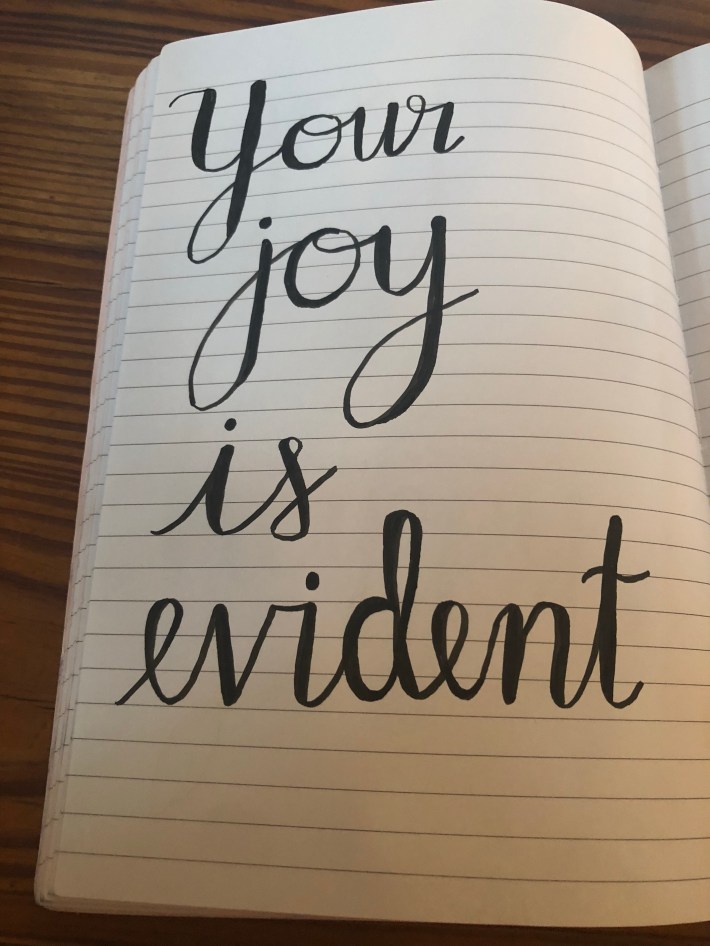 Your
joy
is
evident